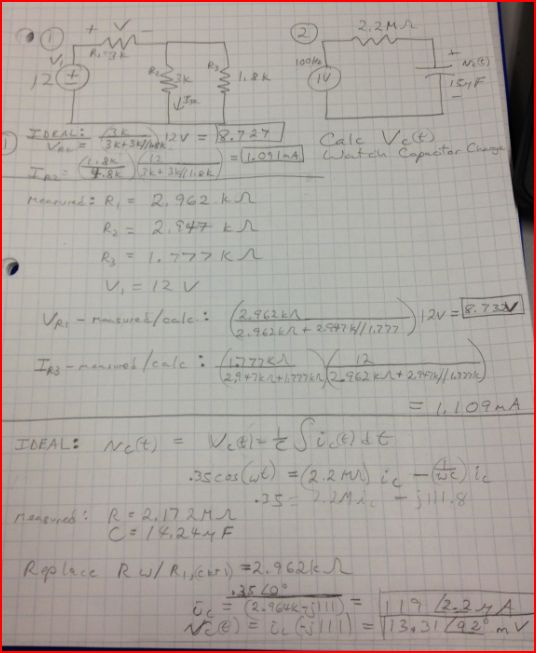 ① + V − ② 2.2MΩ
R₁=3k
V₁ 12 R₂ 3k R₃ 1.8k 100Hz 1V + Vc(t) −
15μF
1 IDEAL: V_R1 = (3k / 3k+3k//1.8k) 12V = 8.727
Calc Vc(t)
Watch Capacitor Charge
I_R2 = (1.8k / 4.8k)(12 / 3k+3k//1.8k) = 1.091mA
measured: R₁ = 2.962 kΩ
R₂ = 2.947 kΩ
R₃ = 1.777 kΩ
V₁ = 12 V
V_R1 - measured/calc.: (2.962kΩ / 2.962kΩ + 2.947k//1.777) 12V =
I_R3 - measured/calc: (1.777kΩ / 2.947kΩ+1.777kΩ)(12 / 2.962kΩ + 2.947k//1.777k)
= 1.109mA
IDEAL: Nc(t) = Vc(t) = 1/c ∫ ic(t) dt
.35cos(ωt) = (2.2MΩ) ic − (1/ωc) ic
.35 = 2.2M ic − j111.8
measured: R = 2.172MΩ
C = 14.24μF
Replace R w/ R₁,(ckt 1) = 2.962kΩ
ic = .35∠0° / (2.964k-j111) = 119∠2.2 μA
Vc(t) = ic(-j111) = 13.31∠92° mV